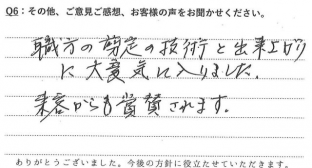 Q6：その他、ご意見ご感想、お客様の声をお聞かせください。
職方の剪定の技術と出来上がり
に大変気に入りました。
来客からも賞賛されます。
ありがとうございました。今後の方針に役立たせていただきます。